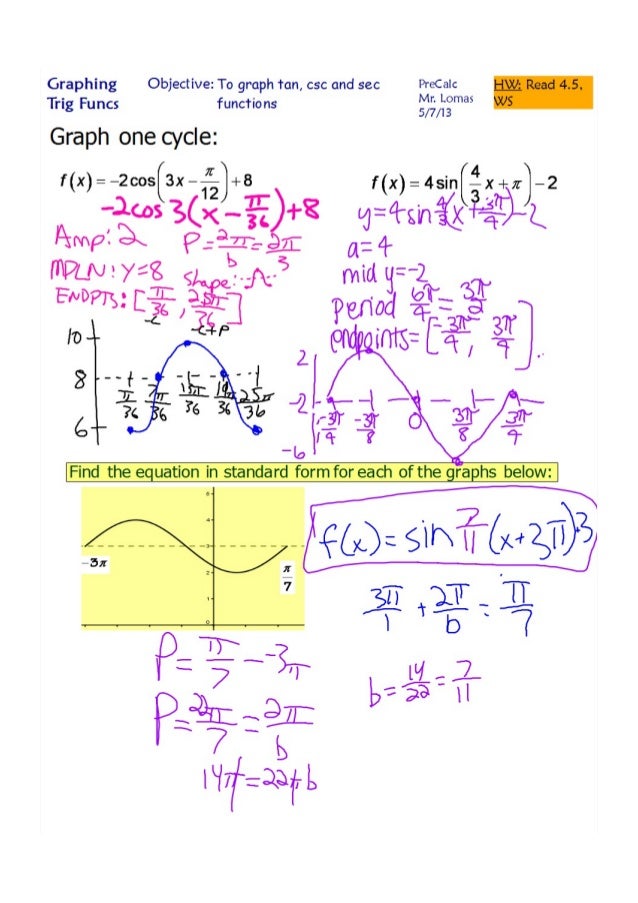 Graphing Trig Funcs
Objective: To graph tan, csc and sec functions
PreCalc
Mr. Lomas
5/7/13
HW: Read 4.5, WS
Graph one cycle:
f(x) = -2cos(3x - π/12) + 8
-2cos 3(x - π/36) + 8
Amp: 2
P = 2π/b = 2π/3
MPLN: Y=8
Shape:
ENDPTS: [π/36, 25π/36]
s+p
10
8
6
π/36 7π/36 13π/36 19π/36 25π/36
f(x) = 4sin(4/3 x + π) - 2
y=4sin 4/3(x + 3π/4) - 2
a=4
mid y=-2
period 6π/4 = 3π/2
endpoints = [-3π/4, 3π/4].
2
-2
-6
-3π/4 -3π/8 0 3π/8 3π/4
Find the equation in standard form for each of the graphs below:
5
4
3
2
1
0
-3π
π/7
f(x) = sin 7/11 (x+3π)+3
3π/1 + 2π/b = π/7
b = 14/22 = 7/11
P = π/7 - -3π
P = 22π/7 = 2π/b
14π = 22πb